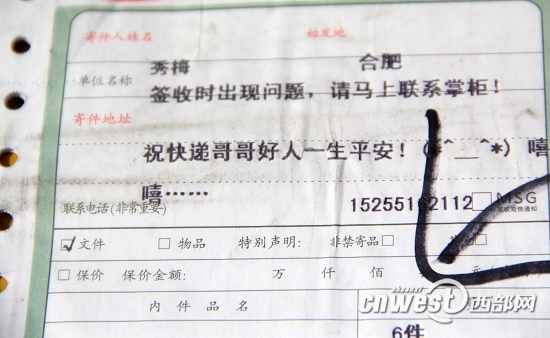 寄件人姓名 始发地
秀梅 合肥
单位名称
签收时出现问题，请马上联系掌柜！
寄件地址
祝快递哥哥好人一生平安！(*^__^*) 嘻
嘻……
联系电话(非常重要) 15255162112 MSG
文件 物品 特别声明：非禁寄品
保价 保价金额： 万 仟 佰 元
内 件 品 名
6件
cnwest西部网